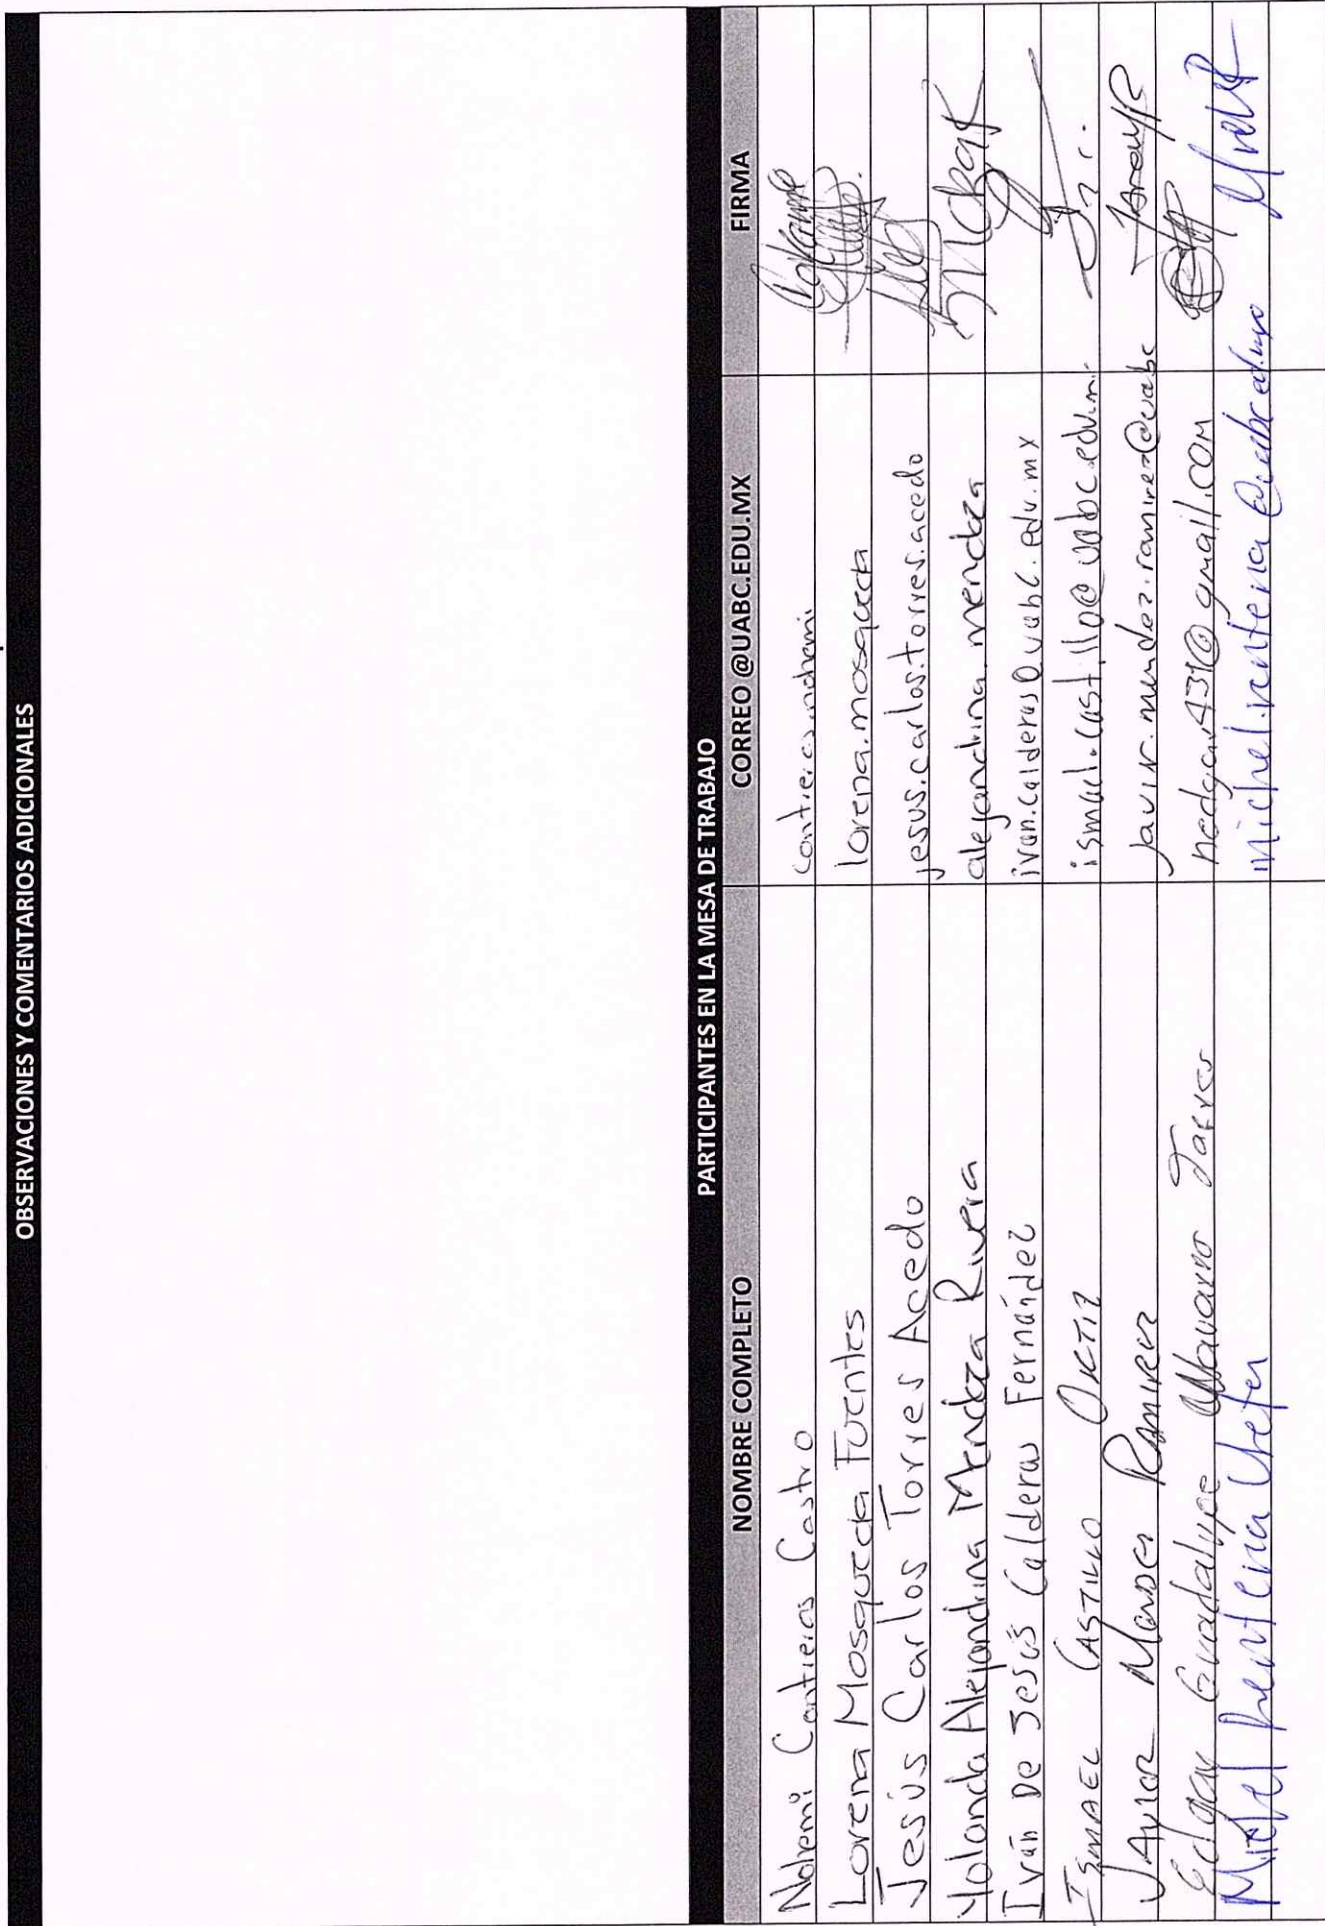 OBSERVACIONES Y COMENTARIOS ADICIONALES
PARTICIPANTES EN LA MESA DE TRABAJO
NOMBRE COMPLETO CORREO @UABC.EDU.MX FIRMA
Nohemí Contreras Castro contreras.nohemi
Lorena Mosqueda Fuentes lorena.mosqueda
Jesús Carlos Torres Acedo jesus.carlos.torres.acedo
Yolanda Alejandrina Mendoza Rivera alejandrina.mendoza
Iván De Jesús Calderas Fernández ivan.calderas@uabc.edu.mx
ISMAEL CASTILLO ORTIZ ismael.castillo@uabc.edu.m
JAVIER MENDEZ RAMIREZ javier.mendez.ramirez@uabc
Edgar Guadalupe Navarro nedgar431@gmail.com
Michel Renteria michel.renteria@uabc.edu.mx